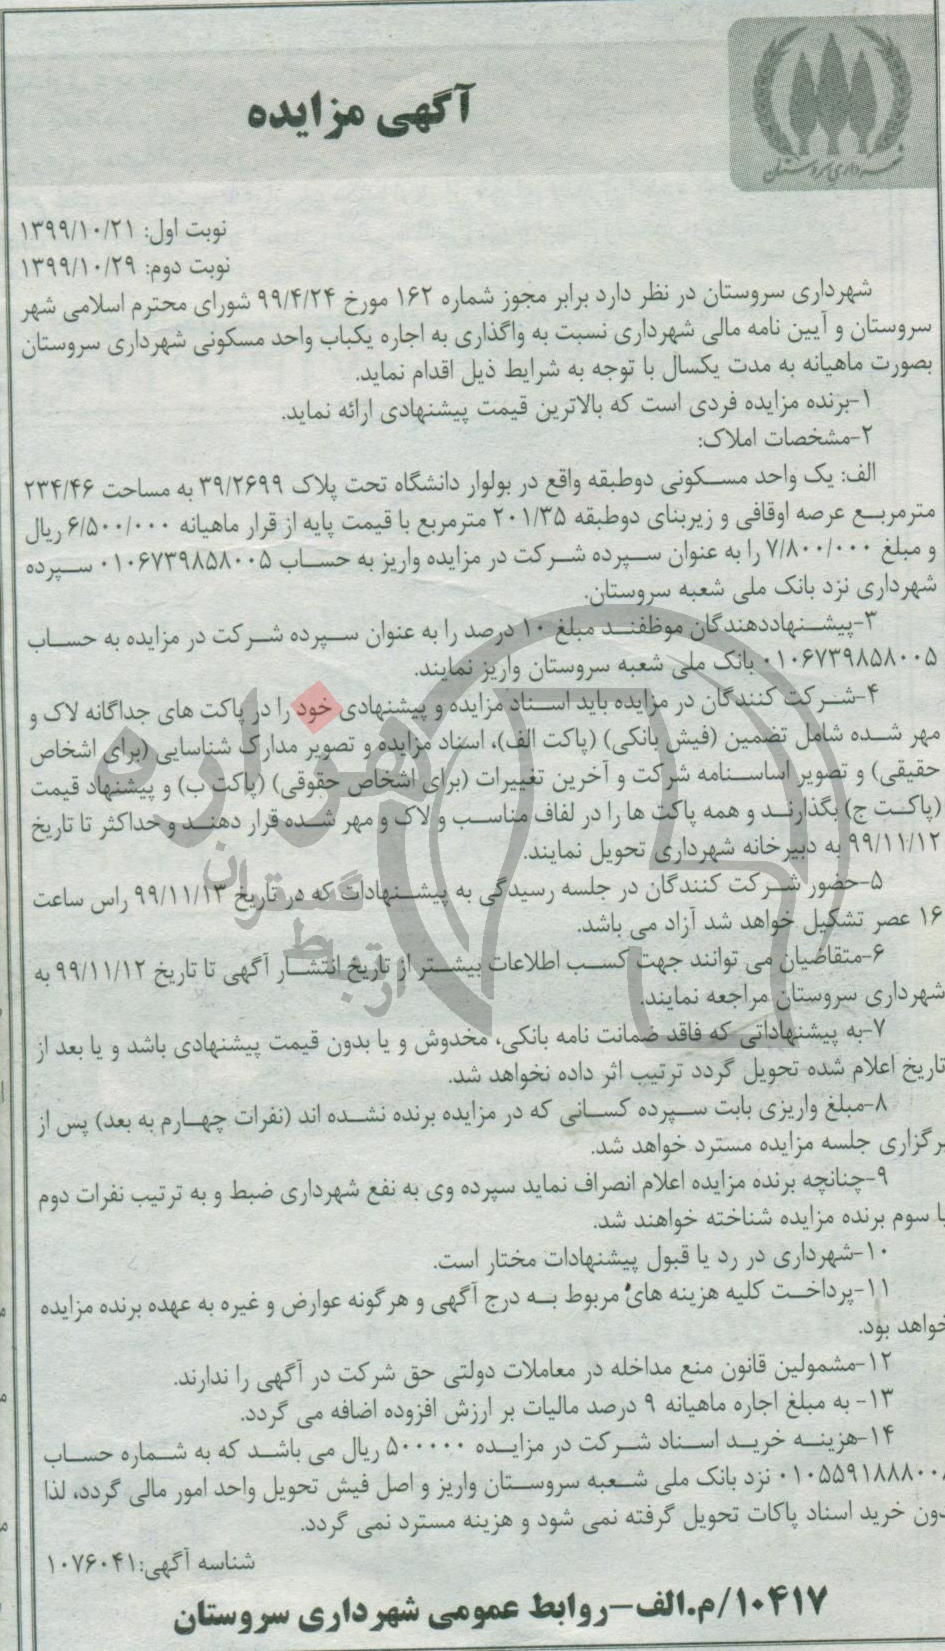 شهرداری سروستان
آگهی مزایده
نوبت اول: ۱۳۹۹/۱۰/۲۱
نوبت دوم: ۱۳۹۹/۱۰/۲۹
شهرداری سروستان در نظر دارد برابر مجوز شماره ۱۶۲ مورخ ۹۹/۴/۲۴ شورای محترم اسلامی شهر
سروستان و آیین نامه مالی شهرداری نسبت به واگذاری به اجاره یکباب واحد مسکونی شهرداری سروستان
بصورت ماهیانه به مدت یکسال با توجه به شرایط ذیل اقدام نماید.
۱-برنده مزایده فردی است که بالاترین قیمت پیشنهادی ارائه نماید.
۲-مشخصات املاک:
الف: یک واحد مسکونی دوطبقه واقع در بولوار دانشگاه تحت پلاک ۳۹/۲۶۹۹ به مساحت ۲۳۴/۴۶
مترمربع عرصه اوقافی و زیربنای دوطبقه ۲۰۱/۳۵ مترمربع با قیمت پایه از قرار ماهیانه ۶/۵۰۰/۰۰۰ ریال
و مبلغ ۷/۸۰۰/۰۰۰ را به عنوان سپرده شرکت در مزایده واریز به حساب ۰۱۰۶۷۳۹۸۵۸۰۰۵ سپرده
شهرداری نزد بانک ملی شعبه سروستان.
۳-پیشنهاددهندگان موظفند مبلغ ۱۰ درصد را به عنوان سپرده شرکت در مزایده به حساب
۰۱۰۶۷۳۹۸۵۸۰۰۵ بانک ملی شعبه سروستان واریز نمایند.
۴-شرکت کنندگان در مزایده باید اسناد مزایده و پیشنهادی خود را در پاکت های جداگانه لاک و
مهر شده شامل تضمین (فیش بانکی) (پاکت الف)، اسناد مزایده و تصویر مدارک شناسایی (برای اشخاص
حقیقی) و تصویر اساسنامه شرکت و آخرین تغییرات (برای اشخاص حقوقی) (پاکت ب) و پیشنهاد قیمت
(پاکت ج) بگذارند و همه پاکت ها را در لفاف مناسب و لاک و مهر شده قرار دهند و حداکثر تا تاریخ
۹۹/۱۱/۱۲ به دبیرخانه شهرداری تحویل نمایند.
۵-حضور شرکت کنندگان در جلسه رسیدگی به پیشنهادات که در تاریخ ۹۹/۱۱/۱۳ راس ساعت
۱۶ عصر تشکیل خواهد شد آزاد می باشد.
۶-متقاضیان می توانند جهت کسب اطلاعات بیشتر از تاریخ انتشار آگهی تا تاریخ ۹۹/۱۱/۱۲ به
شهرداری سروستان مراجعه نمایند.
۷-به پیشنهاداتی که فاقد ضمانت نامه بانکی، مخدوش و یا بدون قیمت پیشنهادی باشد و یا بعد از
تاریخ اعلام شده تحویل گردد ترتیب اثر داده نخواهد شد.
۸-مبلغ واریزی بابت سپرده کسانی که در مزایده برنده نشده اند (نفرات چهارم به بعد) پس از
برگزاری جلسه مزایده مسترد خواهد شد.
۹-چنانچه برنده مزایده اعلام انصراف نماید سپرده وی به نفع شهرداری ضبط و به ترتیب نفرات دوم
یا سوم برنده مزایده شناخته خواهند شد.
۱۰-شهرداری در رد یا قبول پیشنهادات مختار است.
۱۱-پرداخت کلیه هزینه های مربوط به درج آگهی و هرگونه عوارض و غیره به عهده برنده مزایده
خواهد بود.
۱۲-مشمولین قانون منع مداخله در معاملات دولتی حق شرکت در آگهی را ندارند.
۱۳- به مبلغ اجاره ماهیانه ۹ درصد مالیات بر ارزش افزوده اضافه می گردد.
۱۴-هزینه خرید اسناد شرکت در مزایده ۵۰۰۰۰۰ ریال می باشد که به شماره حساب
نزد بانک ملی شعبه سروستان واریز و اصل فیش تحویل واحد امور مالی گردد، لذا
دون خرید اسناد پاکات تحویل گرفته نمی شود و هزینه مسترد نمی گردد.
شناسه آگهی:۱۰۷۶۰۴۱
۱۰۴۱۷/م.الف-روابط عمومی شهرداری سروستان
هزاره